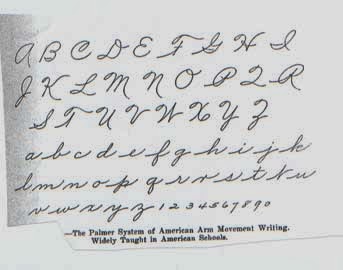 A B C D E F G H I
J K L M N O P Q R
S T U V W X Y Z
a b c d e f g h i j k
l m n o p q r s t N u
v w x y z 1 2 3 4 5 6 7 8 9 0
—The Palmer System of American Arm Movement Writing.
Widely Taught in American Schools.